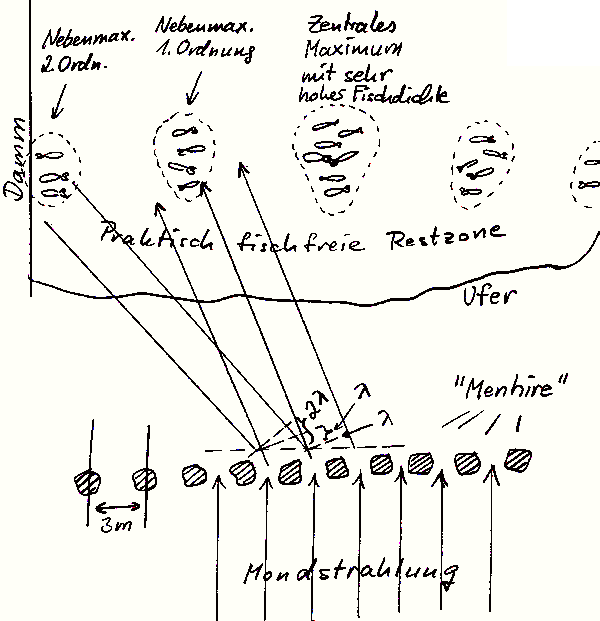 Nebenmax.
2. Ordn.
Nebenmax.
1. Ordnung
Zentrales
Maximum
mit sehr
hoher Fischdichte
Damm
Praktisch fischfreie Restzone
Ufer
2λ
λ
λ
λ
"Menhire"
3m
Mondstrahlung